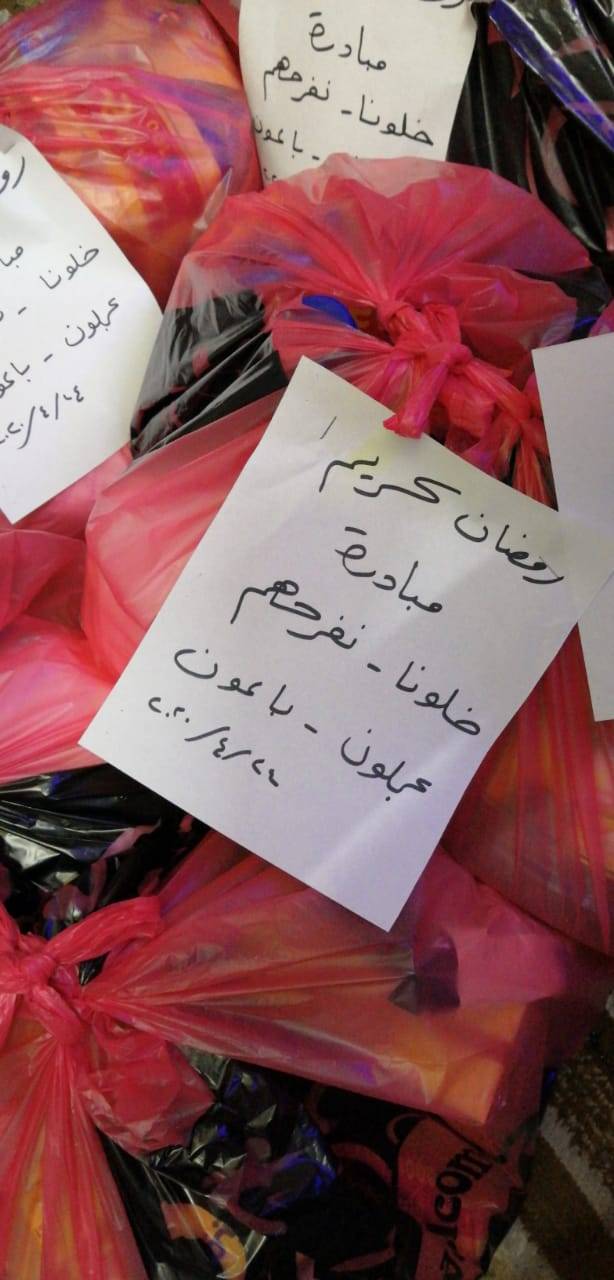 مبادرة
خلونا - نفرحهم
خلونا
عجلون - باعون
٢٠٢٠/٤/٢٤
رمضان كريم
مبادرة
خلونا - نفرحهم
عجلون - باعون
٢٠٢٠/٤/٢٤
.com